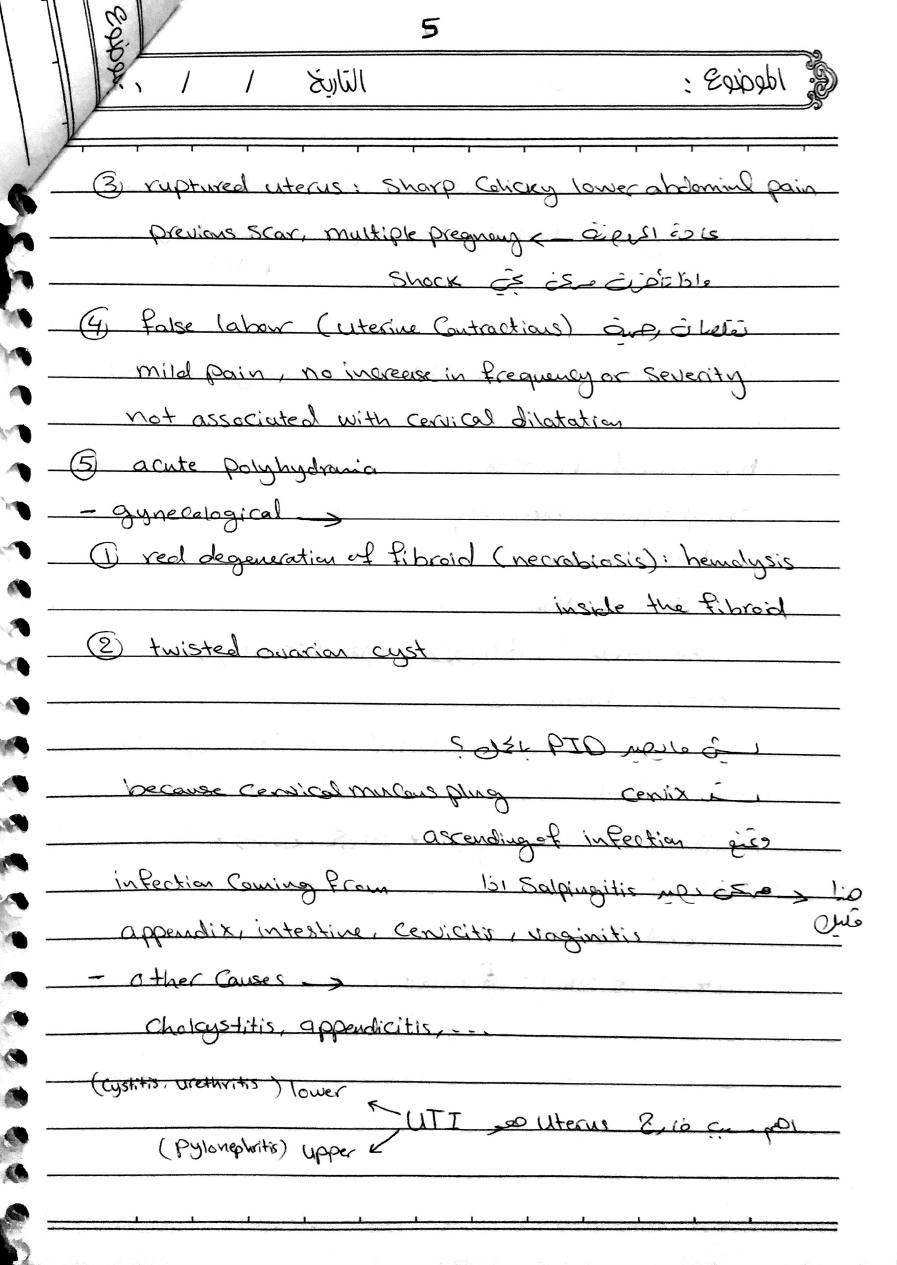 5
الموضوع :
التاريخ / /
③ ruptured uterus : Sharp Colicky lower abdominl pain
previous scar, multiple pregnancy ← عادة المريضة
واذا تأخرت ممكن تجي Shock
④ false labour (uterine Contractions) تقلصات رحمية
mild pain, no increese in frequency or severity
not associated with cervical dilatation
⑤ acute polyhydramia
- gynecological →
① red degeneration of fibroid (necrobiosis) : hemolysis
inside the fibroid
② twisted ovarian cyst
ليش مايصير PID بالحمل ؟
because cervical mucus plug يسد cervix
وتمنع ascending of infection
هنا قليل → ممكن يصير Salpingitis اذا infection Coming from
appendix, intestine, cervicitis, vaginitis
- other Causes →
Cholcystitis, appendicitis, ....
(cystitis, urethritis) lower
اهم سبب خارج uterus هو UTI
(pylonephritis) upper